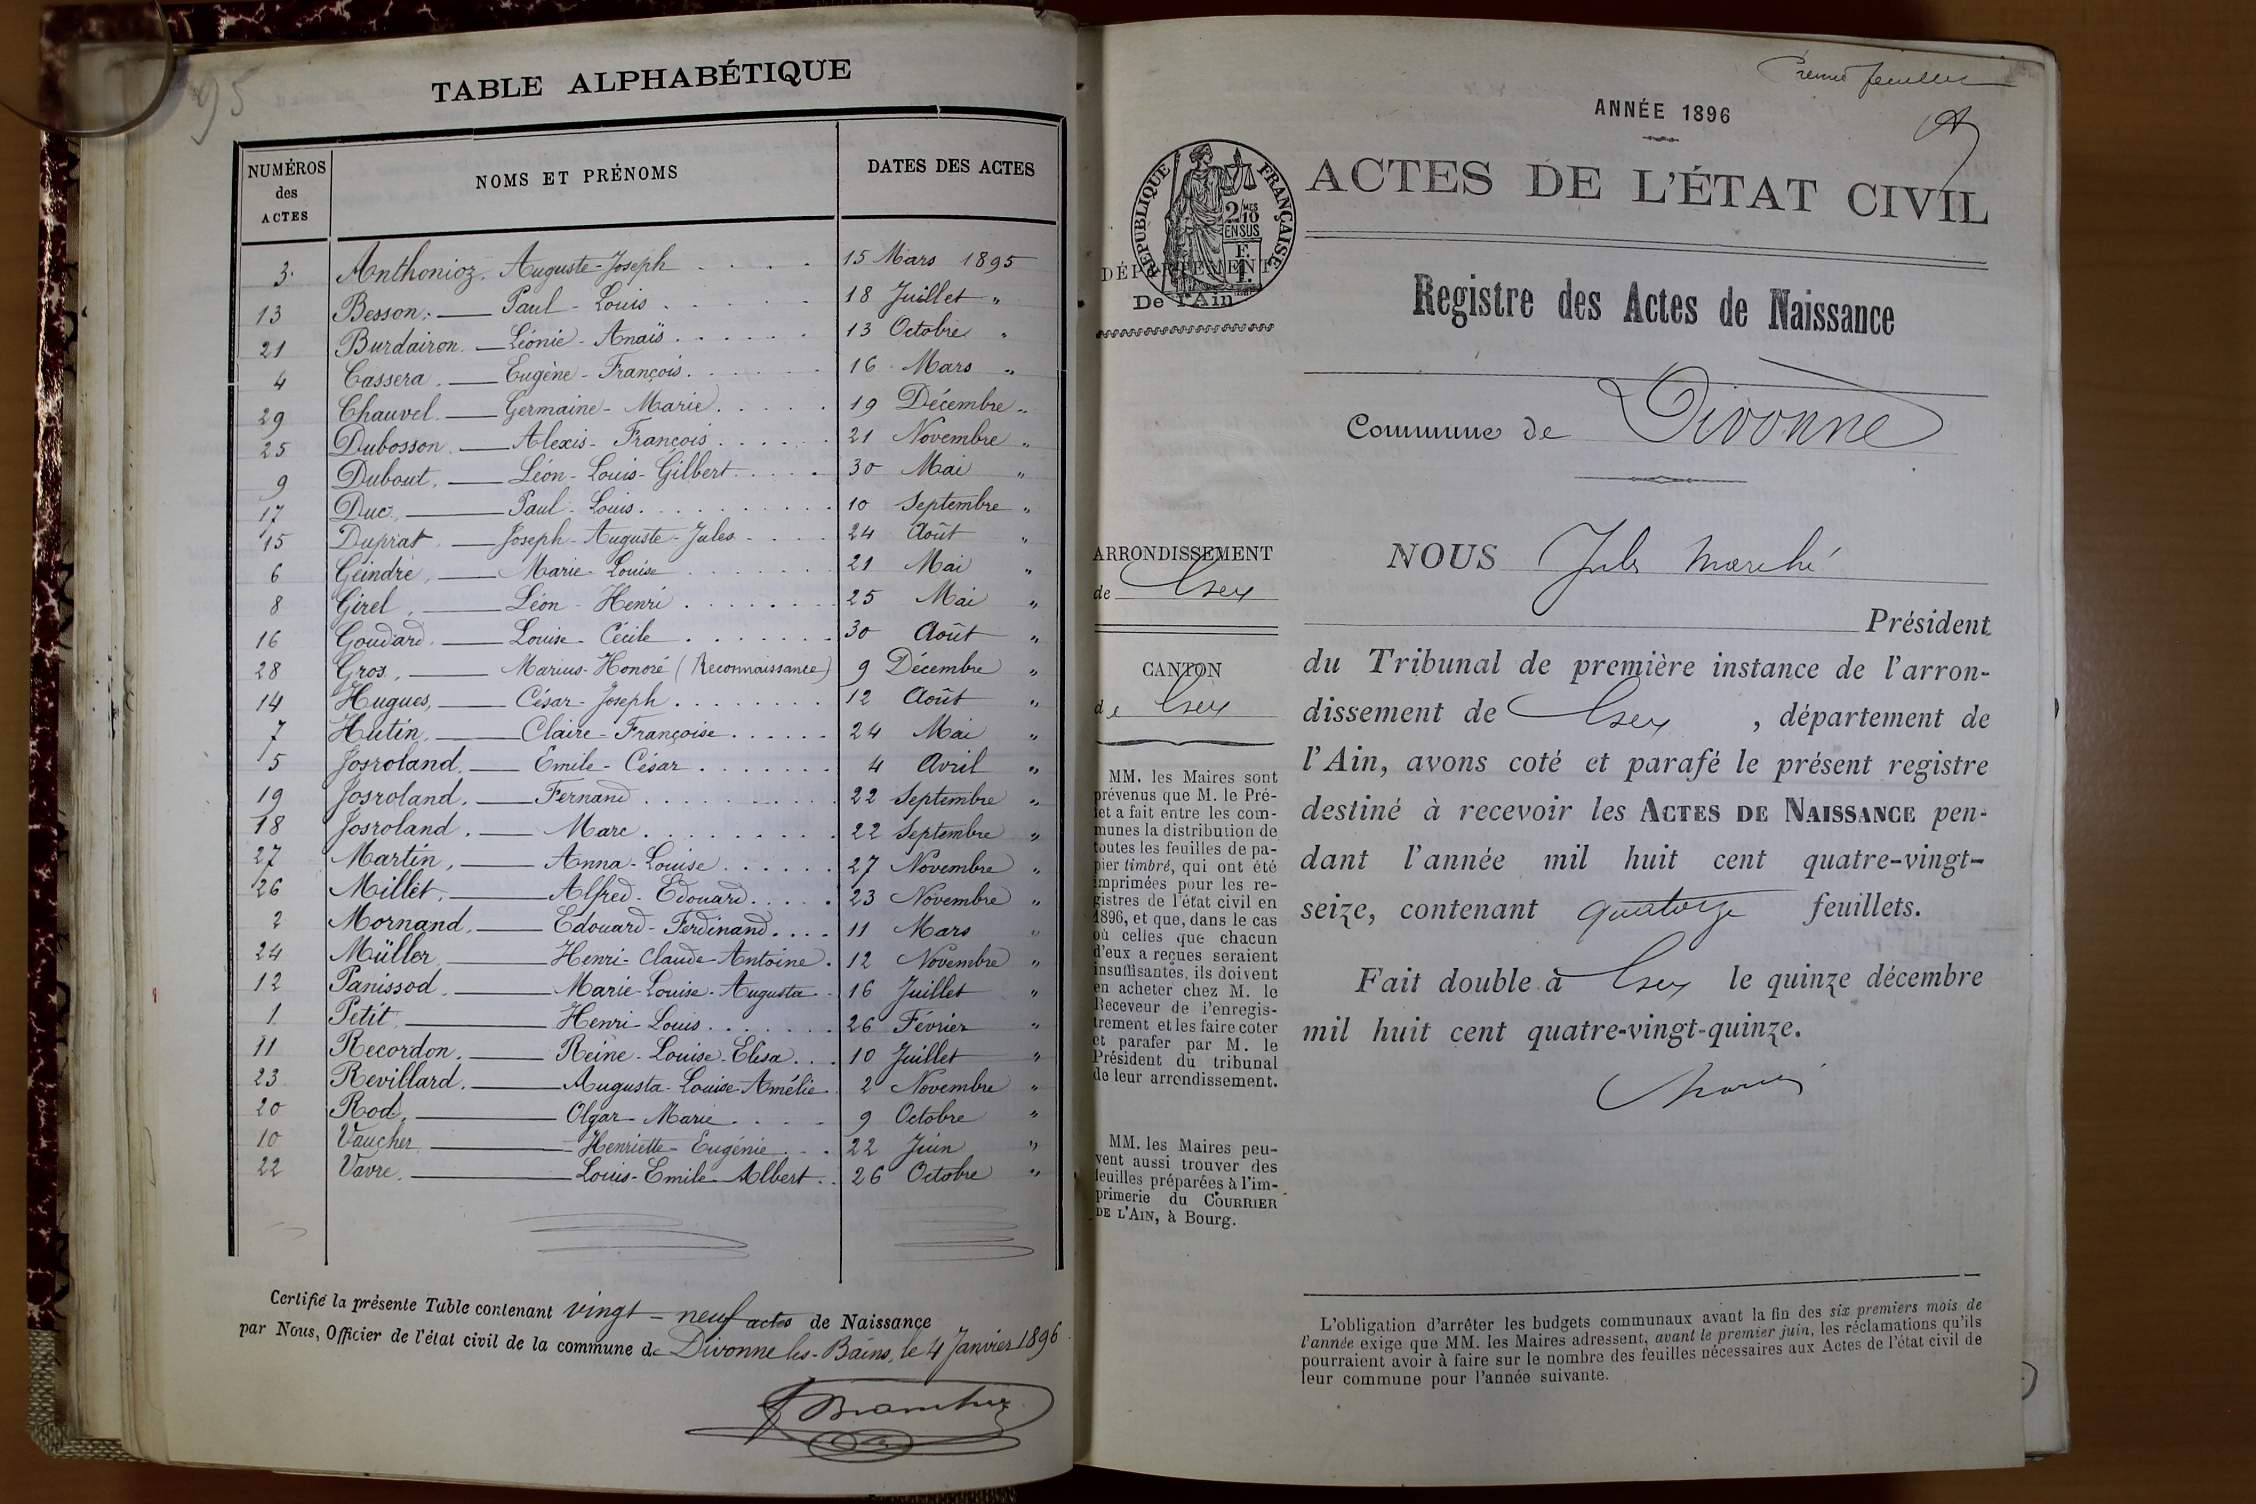 95
TABLE ALPHABÉTIQUE
NUMÉROS des ACTES
NOMS ET PRÉNOMS
DATES DES ACTES
3 Anthonioz. Auguste-Joseph . . . . 15 Mars 1895
13 Besson. — Paul-Louis . . . . . 18 Juillet "
21 Burdairon. — Léonie-Anaïs . . . . . . 13 Octobre "
4 Cassera. — Eugène-François . . . . . . 16 Mars "
29 Chauvel. — Germaine-Marie . . . . . 19 Décembre "
25 Dubosson. — Alexis-François . . . . . . 21 Novembre "
9 Dubout. — Léon-Louis-Gilbert . . . . 30 Mai "
17 Duc. — Paul-Louis . . . . . . . . . . 10 Septembre "
15 Duprat. — Joseph-Auguste-Jules . . . . 24 Août "
6 Geindre. — Marie-Louise . . . . . . . 21 Mai "
8 Girel. — Léon-Henri . . . . . . . . 25 Mai "
16 Goudard. — Louise-Cécile . . . . . . . 30 Août "
28 Gros. — Marius-Honoré (Reconnaissance) 9 Décembre "
14 Hugues, — César-Joseph . . . . . . . . 12 Août "
7 Hutin. — Claire-Françoise . . . . . . 24 Mai "
5 Josroland. — Emile-César . . . . . . . 4 Avril "
19 Josroland. — Fernand . . . . . . . . . . 22 Septembre "
18 Josroland. — Marc . . . . . . . . . 22 Septembre "
27 Martin, — Anna-Louise . . . . . . 27 Novembre "
26 Millet. — Alfred-Edouard . . . . . 23 Novembre "
2 Mornand. — Edouard-Ferdinand . . . . 11 Mars "
24 Müller — Henri-Claude-Antoine . 12 Novembre "
12 Panissod. — Marie-Louise-Augusta . 16 Juillet "
1 Petit. — Henri-Louis . . . . . . . 26 Février "
11 Recordon. — Reine-Louise-Elisa . . . 10 Juillet "
23 Revillard. — Augusta-Louise-Amélie 2 Novembre "
20 Rod, — Olgar-Marie . . . . 9 Octobre "
10 Vaucher — Henriette-Eugénie . . . 22 Juin "
22 Vavre. — Louis-Emile-Albert . . 26 Octobre "
Certifié la présente Table contenant vingt-neuf actes de Naissance
par Nous, Officier de l'état civil de la commune de Divonne les-Bains, le 4 Janvier 1896
Premier feuillet
ANNÉE 1896
RÉPUBLIQUE FRANÇAISE
2/10 MES
EN SUS
ACTES DE L'ÉTAT CIVIL
DÉPARTEMENT
De l'Ain
Registre des Actes de Naissance
Commune de Divonne
NOUS Jules Marché
Président
du Tribunal de première instance de l'arron-
dissement de Gex, département de
l'Ain, avons coté et parafé le présent registre
destiné à recevoir les ACTES DE NAISSANCE pen-
dant l'année mil huit cent quatre-vingt-
seize, contenant quatorze feuillets.
Fait double à Gex le quinze décembre
mil huit cent quatre-vingt-quinze.
ARRONDISSEMENT
de Gex
CANTON
de Gex
MM. les Maires sont
prévenus que M. le Pré-
fet a fait entre les com-
munes la distribution de
toutes les feuilles de pa-
pier timbré, qui ont été
imprimées pour les re-
gistres de l'état civil en
1896, et que, dans le cas
où celles que chacun
d'eux a reçues seraient
insuffisantes, ils doivent
en acheter chez M. le
Receveur de l'enregis-
trement et les faire coter
et parafer par M. le
Président du tribunal
de leur arrondissement.
MM. les Maires peu-
vent aussi trouver des
feuilles préparées à l'im-
primerie du COURRIER
DE L'AIN, à Bourg.
L'obligation d'arrêter les budgets communaux avant la fin des six premiers mois de
l'année exige que MM. les Maires adressent, avant le premier juin, les réclamations qu'ils
pourraient avoir à faire sur le nombre des feuilles nécessaires aux Actes de l'état civil de
leur commune pour l'année suivante.